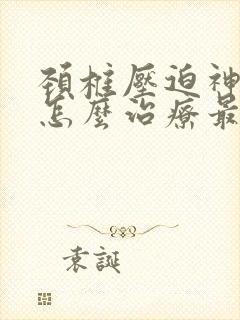 頚椎壓迫神
怎麼治療最
袁誕